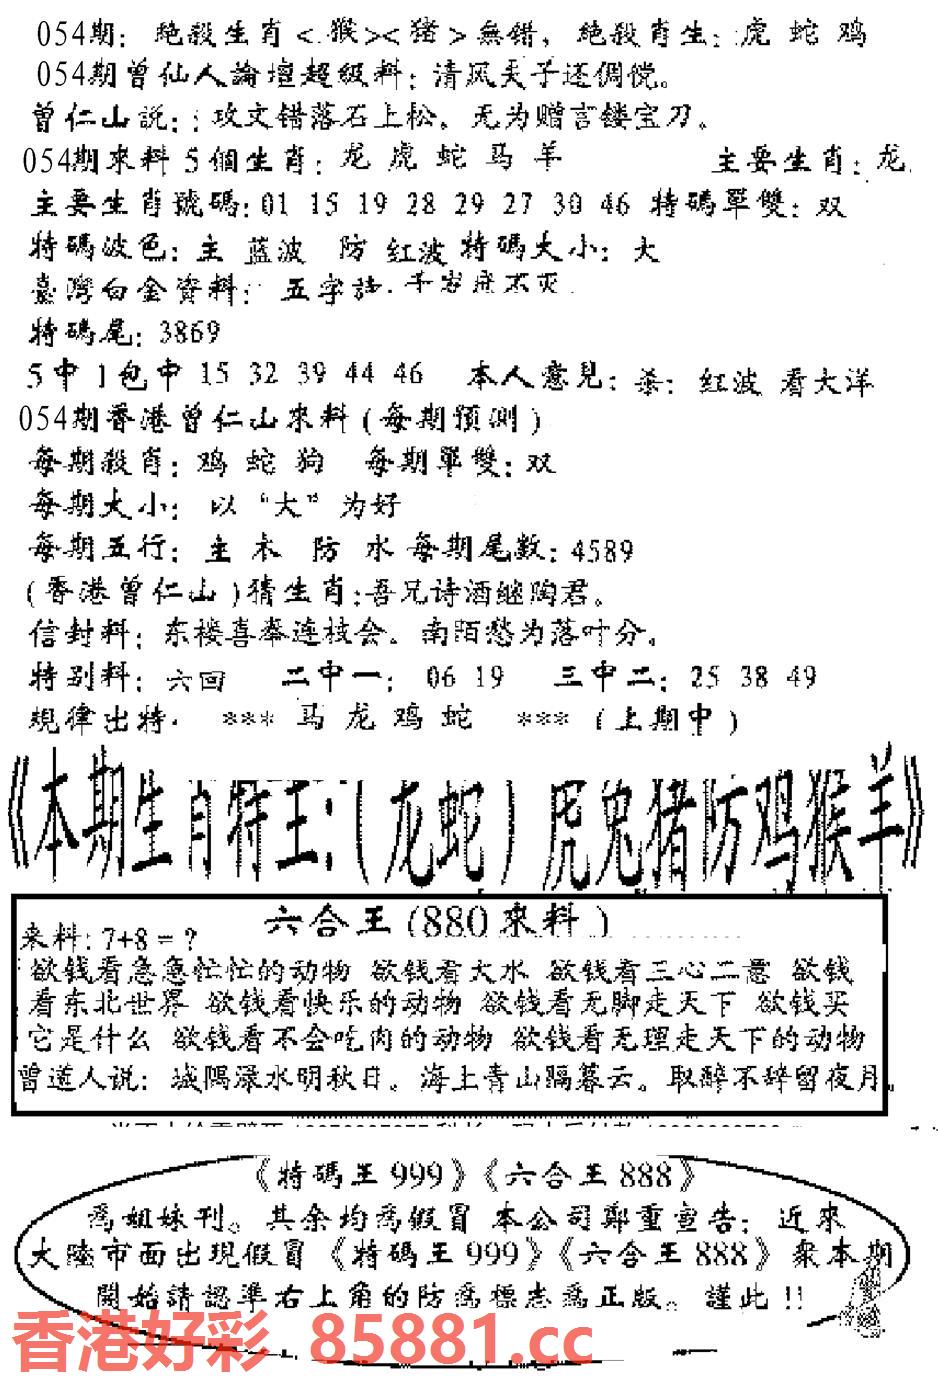 054期：絶殺生肖<.猴><猪>無錯，絶殺肖生：虎 蛇 鸡
054期曾仙人論壇超級料：清风天子还倜傥。
曾仁山説：攻文错落石上松。无为赠言镂宝刀。
054期來料 5個生肖：龙 虎 蛇 马 羊 主要生肖：龙
主要生肖號碼：01 15 19 28 29 27 30 46 特碼單雙：双
特碼波色：主 蓝波 防 红波 特碼大小：大
臺灣白金資料： 五字詩.千岁底不灭
特碼尾：3869
5中1包中 15 32 39 44 46 本人意見：杀：红波 看大洋
054期香港曾仁山來料(每期預測)
每期殺肖：鸡 蛇 狗 每期單雙：双
每期大小：以“大”为好
每期五行：主 木 防 水 每期尾数：4589
(香港曾仁山)猜生肖：吾兄诗酒继陶君。
信封料：东楼喜奉连枝会。南陌愁为落叶分。
特别料：六回 二中一：06 19 三中二：25 38 49
規律出特. *** 马 龙 鸡 蛇 *** (上期中)
《本期生肖特王：(龙蛇)虎兔猪防鸡猴羊》
六合王(880來料)
来料：7+8=?
欲钱看急急忙忙的动物 欲钱看大水 欲钱看三心二意 欲钱
看东北世界 欲钱看快乐的动物 欲钱看无脚走天下 欲钱买
它是什么 欲钱看不会吃肉的动物 欲钱看无理走天下的动物
曾道人说：城隅渌水明秋日。海上青山隔暮云。取醉不辞留夜月。
《特碼王999》《六合王888》
為姐妹刊。其余均為假冒 本公司鄭重宣告：近來
大陸市面出現假冒《特碼王999》《六合王888》衆本期
開始請認準右上角的防為標志為正版。謹此!!
香港好彩 85881.cc